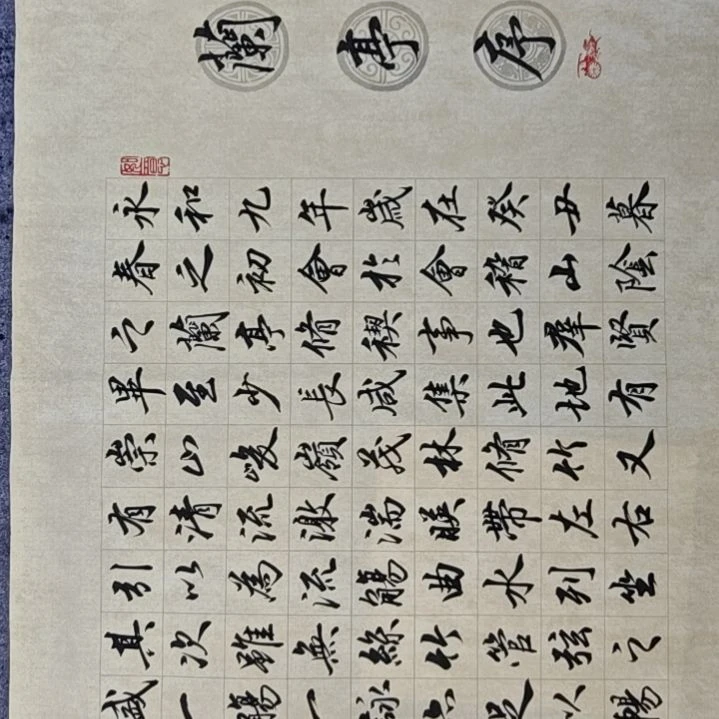 蘭亭序
永和九年歲在癸丑暮
春之初會於會稽山陰
之蘭亭脩禊事也羣賢
畢至少長咸集此地有
崇山峻嶺茂林脩竹又
有清流激湍暎帶左右
引以為流觴曲水列坐
其次雖無絲竹管弦之
盛一觴一詠亦足以暢